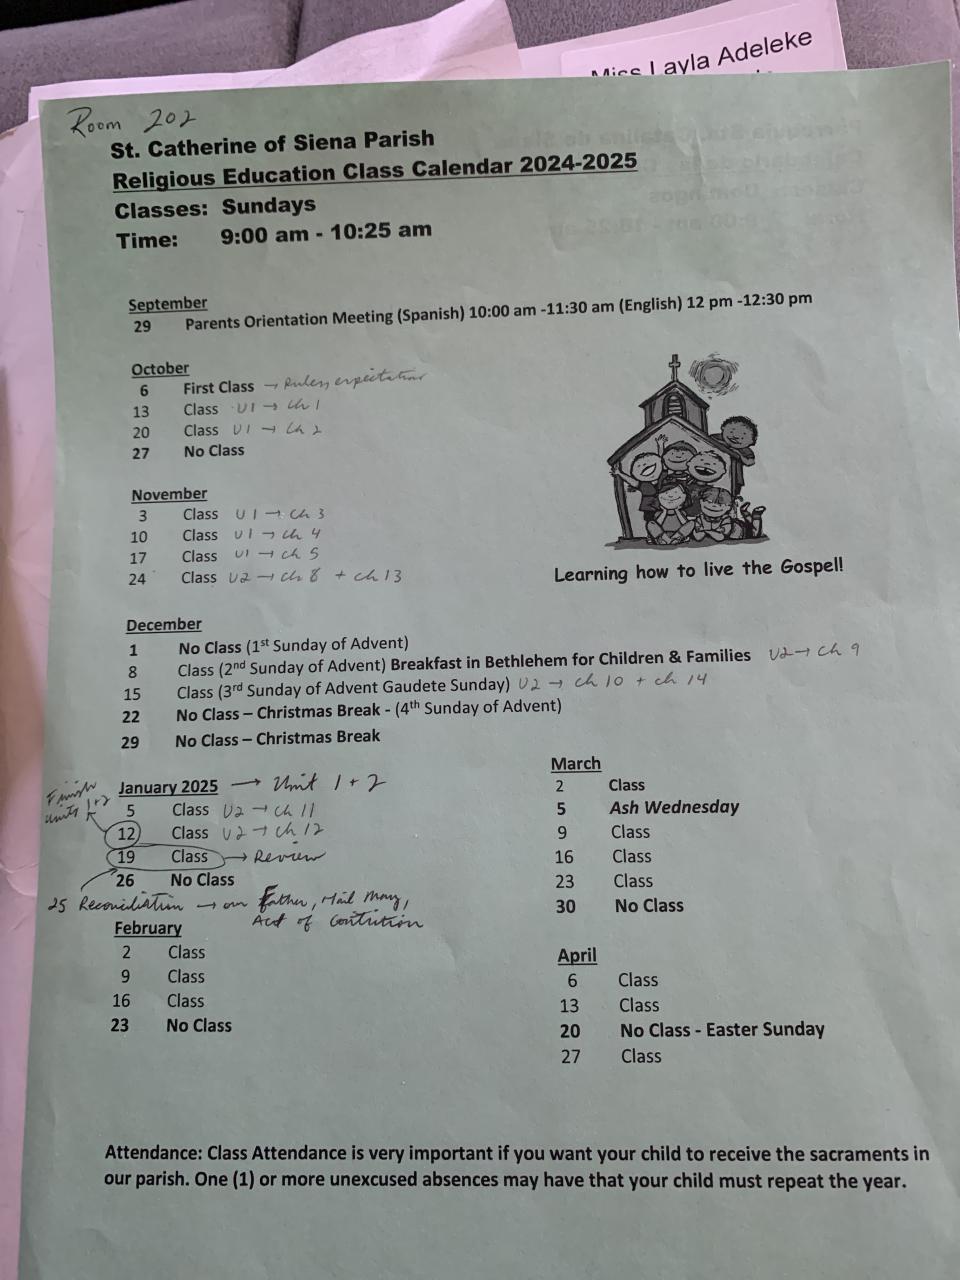 Miss Layla Adeleke
Room 202
St. Catherine of Siena Parish
Religious Education Class Calendar 2024-2025
Classes: Sundays
Time: 9:00 am - 10:25 am
September
29 Parents Orientation Meeting (Spanish) 10:00 am -11:30 am (English) 12 pm -12:30 pm
October
6 First Class → Rules, expectations
13 Class U1 → Ch 1
20 Class U1 → Ch 2
27 No Class
November
3 Class U1 → Ch 3
10 Class U1 → Ch 4
17 Class U1 → Ch 5
24 Class U2 → Ch 8 + Ch 13
Learning how to live the Gospel!
December
1 No Class (1st Sunday of Advent)
8 Class (2nd Sunday of Advent) Breakfast in Bethlehem for Children & Families U2 → Ch 9
15 Class (3rd Sunday of Advent Gaudete Sunday) U2 → Ch 10 + Ch 14
22 No Class – Christmas Break - (4th Sunday of Advent)
29 No Class – Christmas Break
Finish
units 1+2
January 2025 → Unit 1 + 2
5 Class U2 → Ch 11
12 Class U2 → Ch 12
19 Class → Review
26 No Class
25 Reconciliation → our Father, Hail Mary,
Act of Contrition
February
2 Class
9 Class
16 Class
23 No Class
March
2 Class
5 Ash Wednesday
9 Class
16 Class
23 Class
30 No Class
April
6 Class
13 Class
20 No Class - Easter Sunday
27 Class
Attendance: Class Attendance is very important if you want your child to receive the sacraments in
our parish. One (1) or more unexcused absences may have that your child must repeat the year.